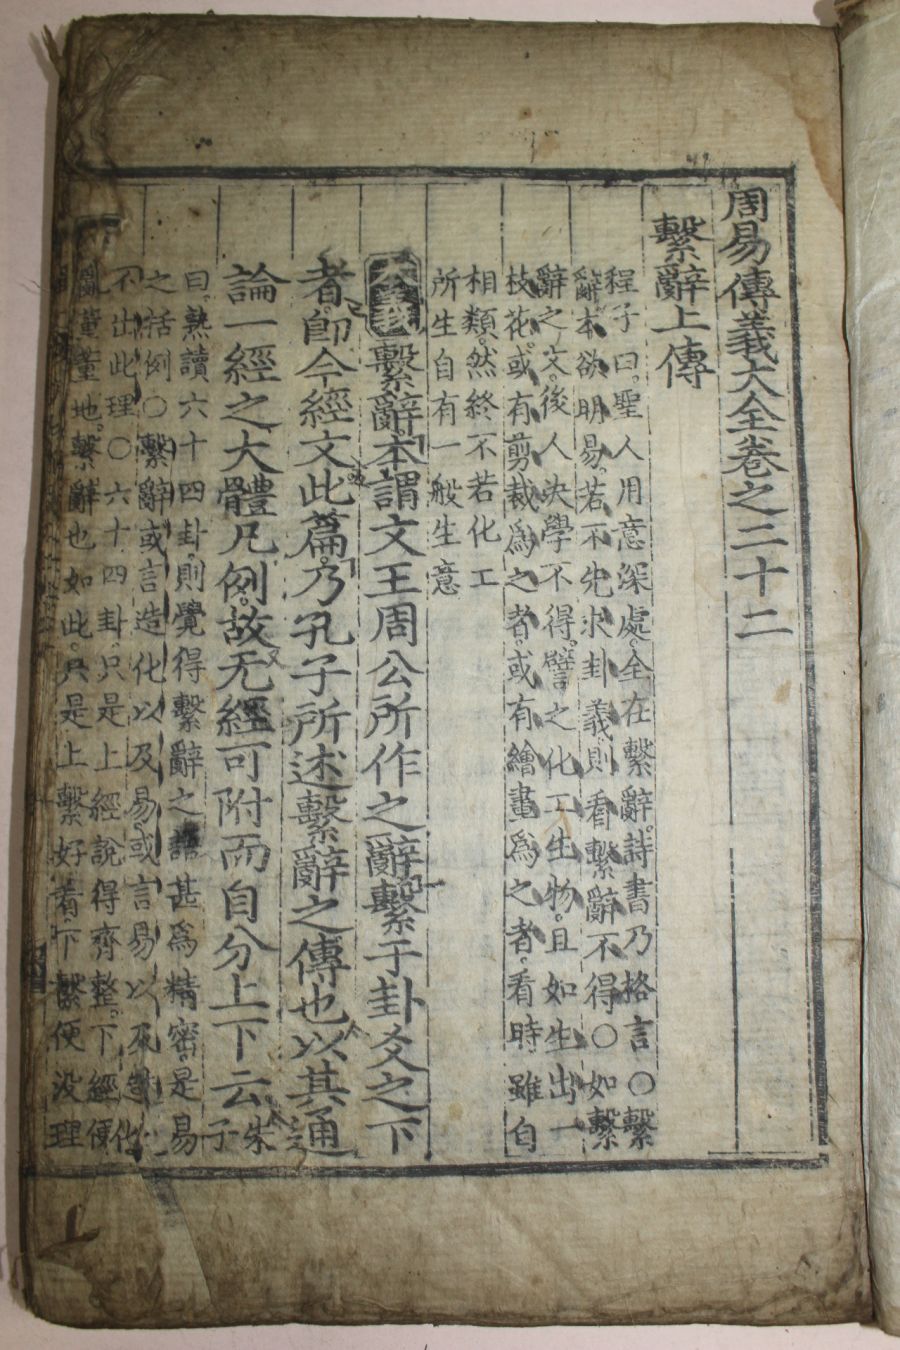 周易傳義大全卷之二十二
繫辭上傳
程子曰聖人用意深處全在繫辭詩書乃格言○繫
辭本欲明易若不先求卦義則看繫辭不得○如繫
辭之文後人决學不得譬之化工生物且如生出一
枝花或有剪裁爲之者或有繪畫爲之者看時雖自
相類然終不若化工
所生自有一般生意
本義繫辭本謂文王周公所作之辭繫于卦爻之下
者即今經文此篇乃孔子所述繫辭之傳也以其通
論一經之大體凡例故无經可附而自分上下云
朱子
曰熟讀六十四卦則覺得繫辭之語甚爲精密是易
之括例○繫辭或言造化以及易或言易以及造化
不出此理○六十四卦只是上經說得齊整下經便
亂董董地繫辭也如此只是上繫好看下繫便没理